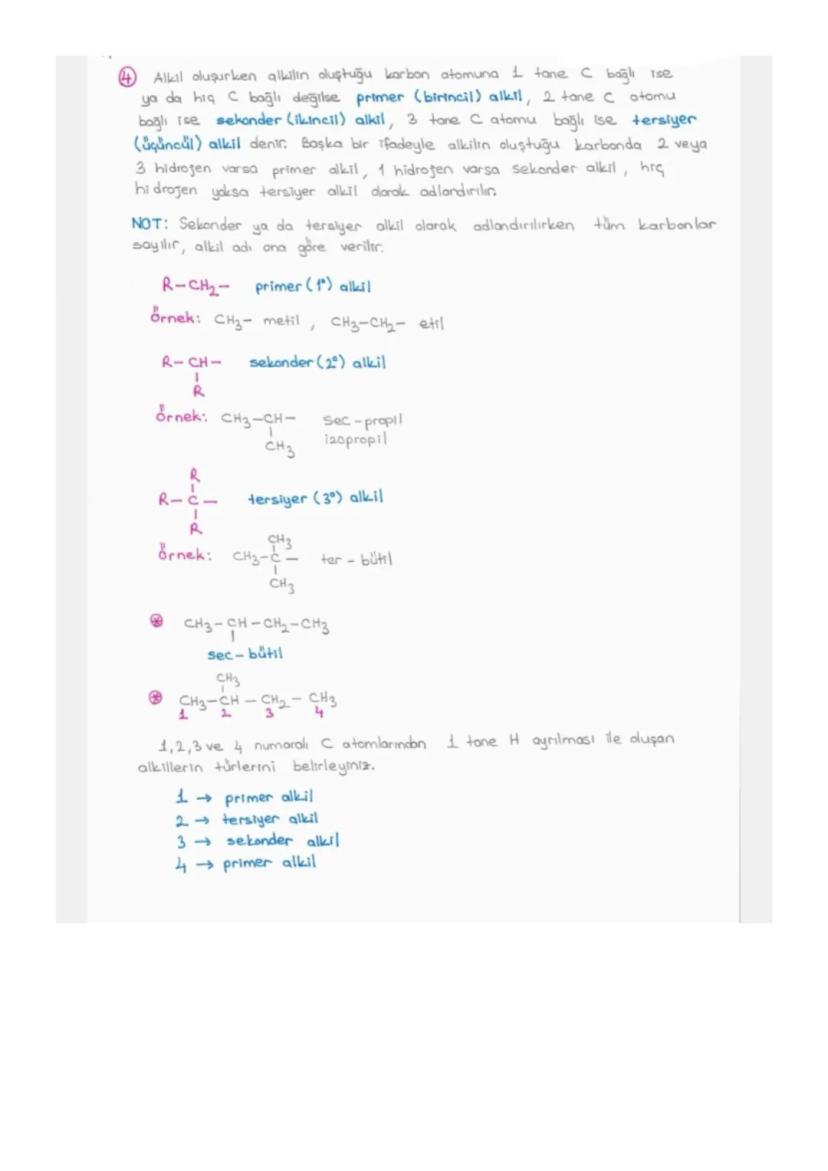 ④ Alkil oluşurken alkilin oluştuğu karbon atomuna 1 tane C bağlı ise
ya da hiç C bağlı değilse primer (birincil) alkil, 2 tane C atomu
bağlı ise sekonder (ikincil) alkil, 3 tane C atomu bağlı ise tersiyer
(üçüncül) alkil denir. Başka bir ifadeyle alkilin oluştuğu karbonda 2 veya
3 hidrojen varsa primer alkil, 1 hidrojen varsa sekonder alkil, hiç
hidrojen yoksa tersiyer alkil olarak adlandırılır.
NOT: Sekonder ya da tersiyer alkil olarak adlandırılırken tüm karbonlar
sayılır, alkil adı ona göre verilir.
R-CH₂- primer (1°) alkil
Örnek: CH₃- metil, CH₃-CH₂- etil
R-CH- sekonder (2°) alkil
R
Örnek: CH₃-CH- sec-propil
CH₃ izopropil
R
R-C- tersiyer (3°) alkil
R
CH₃
Örnek: CH₃-C- ter-bütil
CH₃
CH₃-CH-CH₂-CH₃
sec-bütil
CH₃
CH₃-CH-CH₂-CH₃
1 2 3 4
1,2,3 ve 4 numaralı C atomlarından 1 tane H ayrılması ile oluşan
alkillerin türlerini belirleyiniz.
1 → primer alkil
2 → tersiyer alkil
3 → sekonder alkil
4 → primer alkil